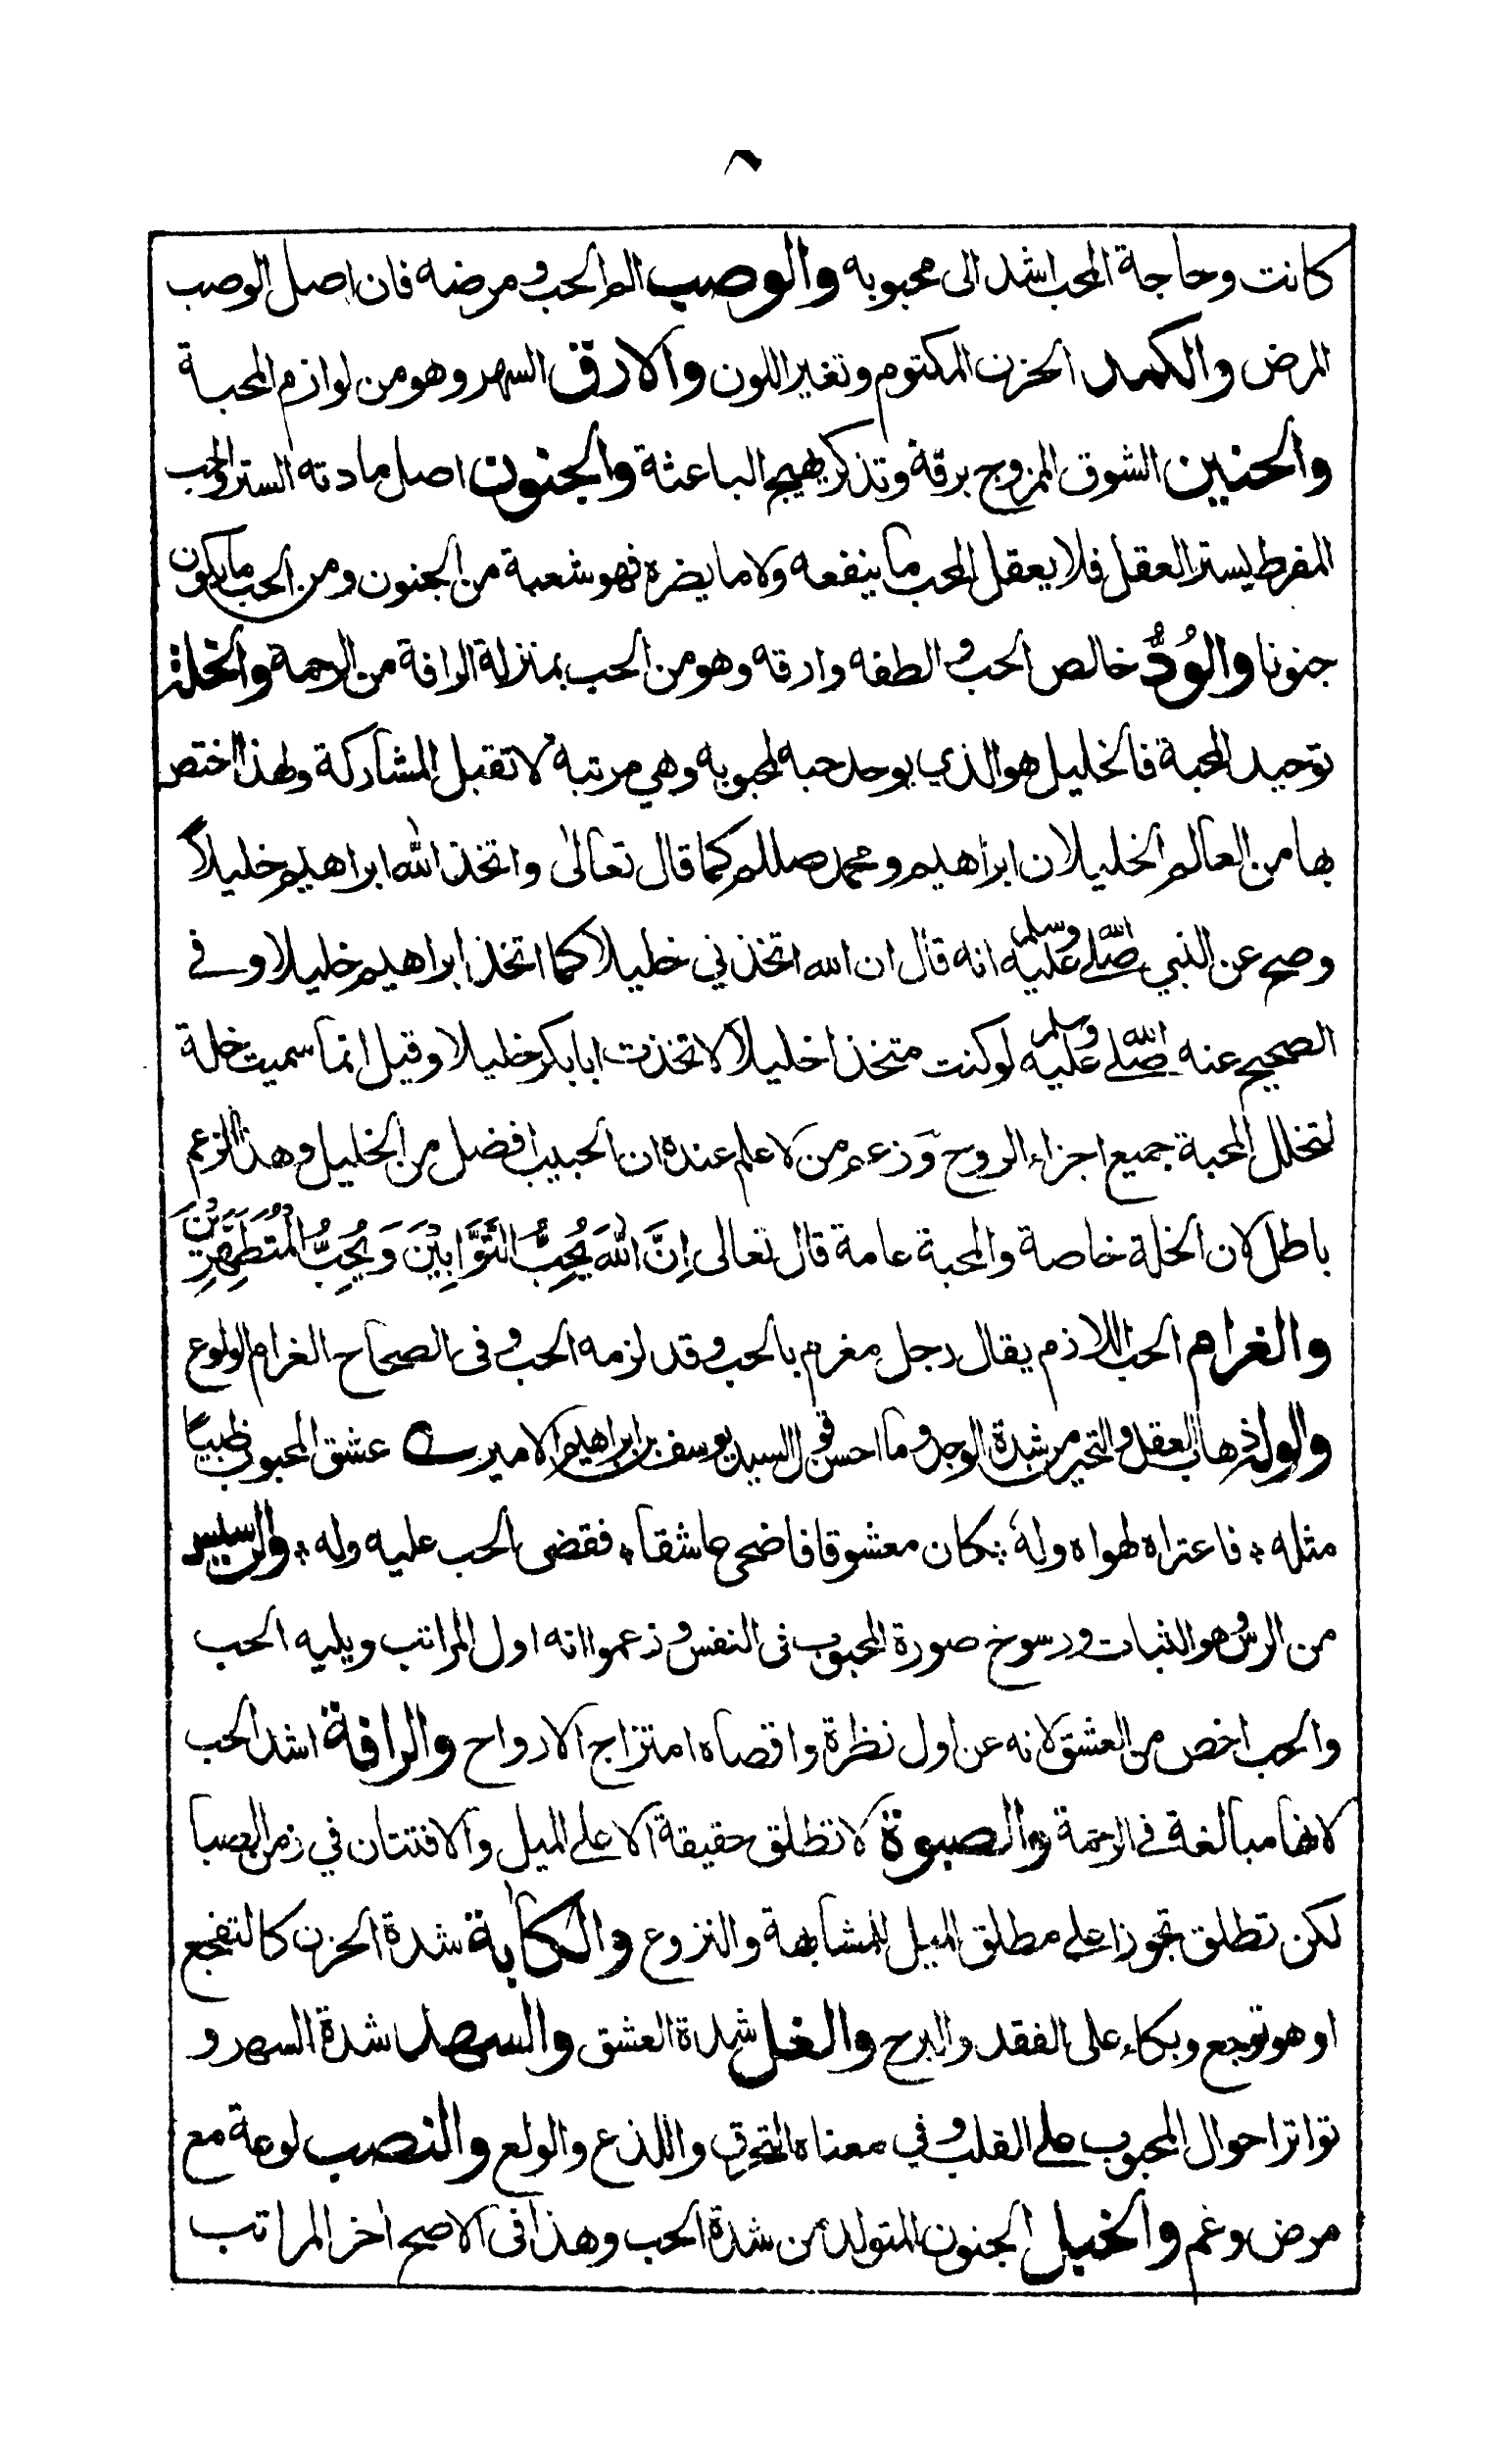 ٨
كانت وحاجة المحب اشد الى محبوبه والوصب الم الحب ومرضه فان اصل الوصب
المرض والكمد الحزن المكتوم وتغير اللون والارق السهر وهو من لوازم المحبة
والحنين الشوق الممزوج برقة وتذكر يهيج الباعثة والجنون اصل مادته الستر والحب
المفرط يستر العقل فلا يعقل المحب ما ينفعه ولا ما يضره فهو شعبة من الجنون ومن الحب ما يكون
جنونا والوُدُّ خالص الحب والطفه وارقه وهو من الحب بمنزلة الرافة من الرحمة والخلة
توحيد المحبة فالخليل هو الذي يوحد حبه لمحبوبه وهي مرتبة لا تقبل المشاركة ولهذا اختص
بها من العالم الخليلان ابراهيم ومحمد صللم كما قال تعالى واتخذ الله ابراهيم خليلاً
وصح عن النبي صلى الله عليه وسلم انه قال ان الله اتخذني خليلا كما اتخذ ابراهيم خليلا وفي
الصحيح عنه صلى الله عليه وسلم لو كنت متخذا خليلا لاتخذت ابا بكر خليلا وقيل انما سميت خلة
لتخلل المحبة جميع اجزاء الروح وزعم من لا علم عنده ان الحبيب افضل من الخليل وهذا الزعم
باطل لان الخلة خاصة والمحبة عامة قال تعالى اِنَّ اللهَ يُحِبُّ التَّوَّابِيْنَ وَيُحِبُّ الْمُتَطَهِّرِيْنَ
والغرام الحب اللازم يقال رجل مغرم بالحب وقد لزمه الحب وفى الصحاح الغرام الولوع
والوله ذهاب العقل والتحير من شدة الوجد وما احسن قول السيد يوسف بن ابراهيم الامير عشق المحبوب ظبيا
مثله * فاعتراه لهواه وله * كان معشوقا فاضحى عاشقا * فقضى الحب عليه وله * والرسيس
من الرس وهو الثبات ورسوخ صورة المحبوب فى النفس وزعموا انه اول المراتب ويليه الحب
والحب اخص من العشق لانه عن اول نظرة واقصاه امتزاج الارواح والرافة اشد الحب
لانها مبالغة في الرحمة والصبوة لا تطلق حقيقة الا على الميل والافتتان في زمن الصبا
لكن تطلق تجوزا على مطلق الميل للمشابهة والنزوع والكابة شدة الحزن كالتفجع
او هو توجع وبكاء على الفقد والبرح والغل شدة العشق والسهد شدة السهر و
تواتر احوال المحبوب على القلب وفي معناه التحرق واللذع والولع والنصب لوعة مع
مرض وغم والخبل الجنون المتولد من شدة الحب وهذا فى الاصح اخر المراتب